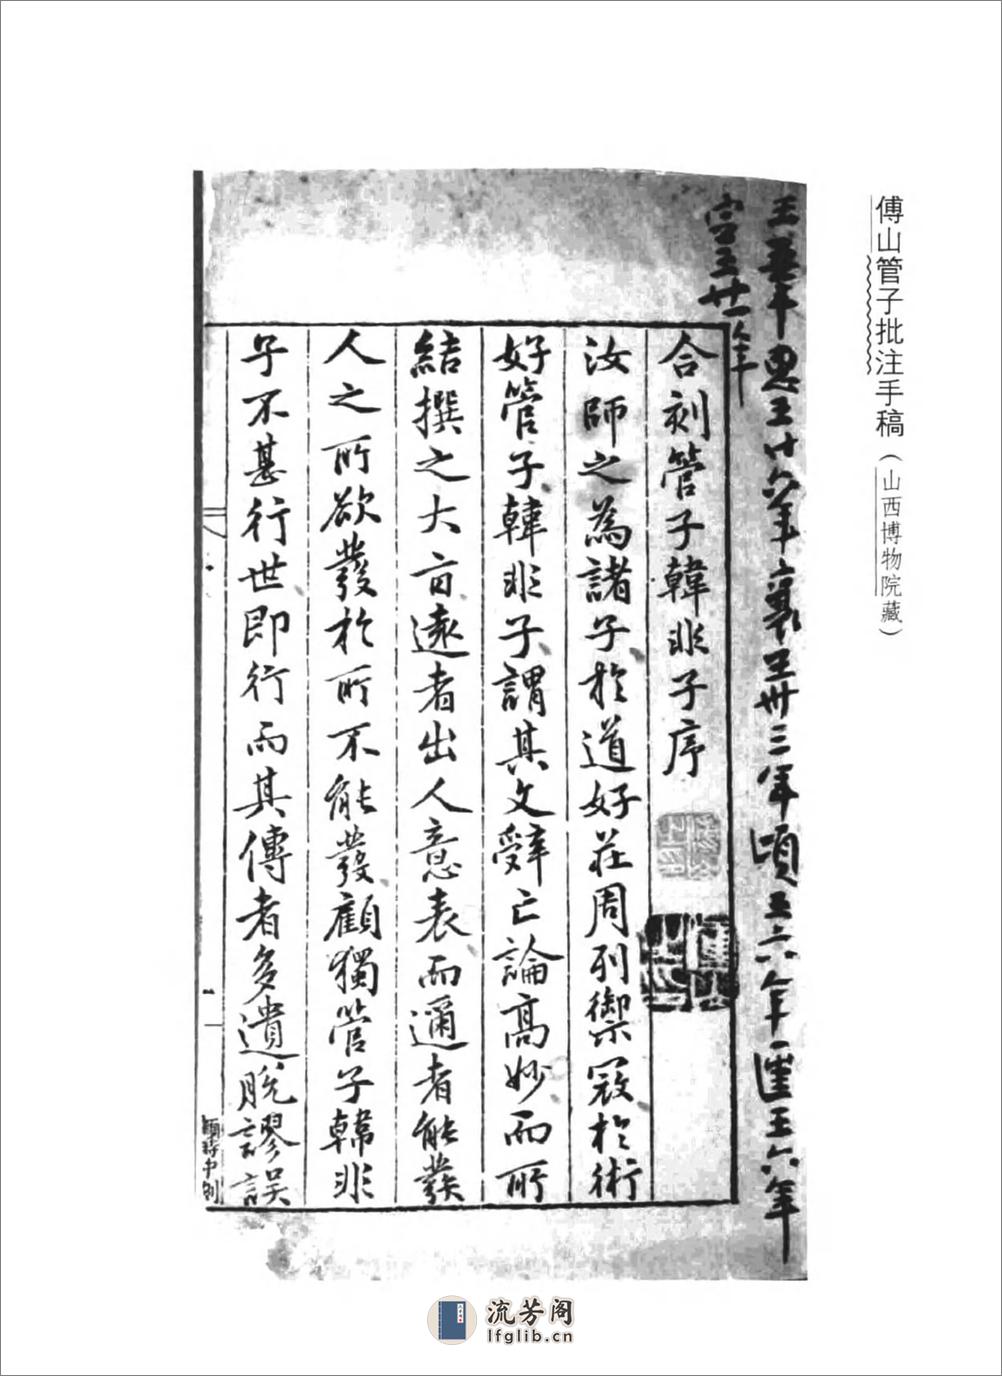 傅山管子批注手稿（山西博物院藏）
惠王廿六年襄王卌三年頃王六年匡王六年
定王廿一年
合刻管子韓非子序
汝師之為諸子於道好莊周列禦寇於術
好管子韓非子謂其文辭亡論高妙而所
結撰之大旨遠者出人意表而邇者能發
人之所欲發於所不能發顧獨管子韓非
子不甚行世即行而其傳者多遺脫謬誤
一
流芳阁
lfglib.cn